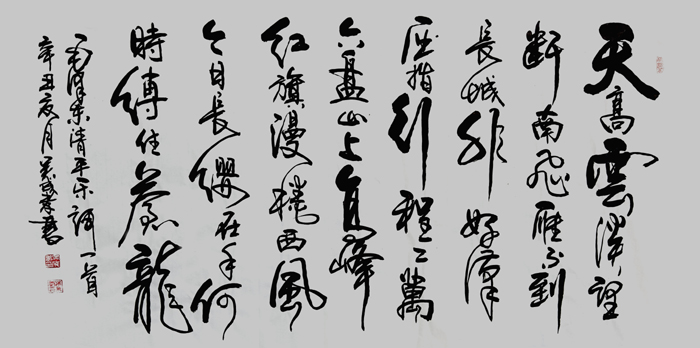 天高雲淡望
断南飛雁不到
長城非好漢
屈指行程二萬
六盘山上高峰
红旗漫捲西風
今日長纓在手何
時缚住蒼龍
毛澤東清平乐词一首
辛丑夏月